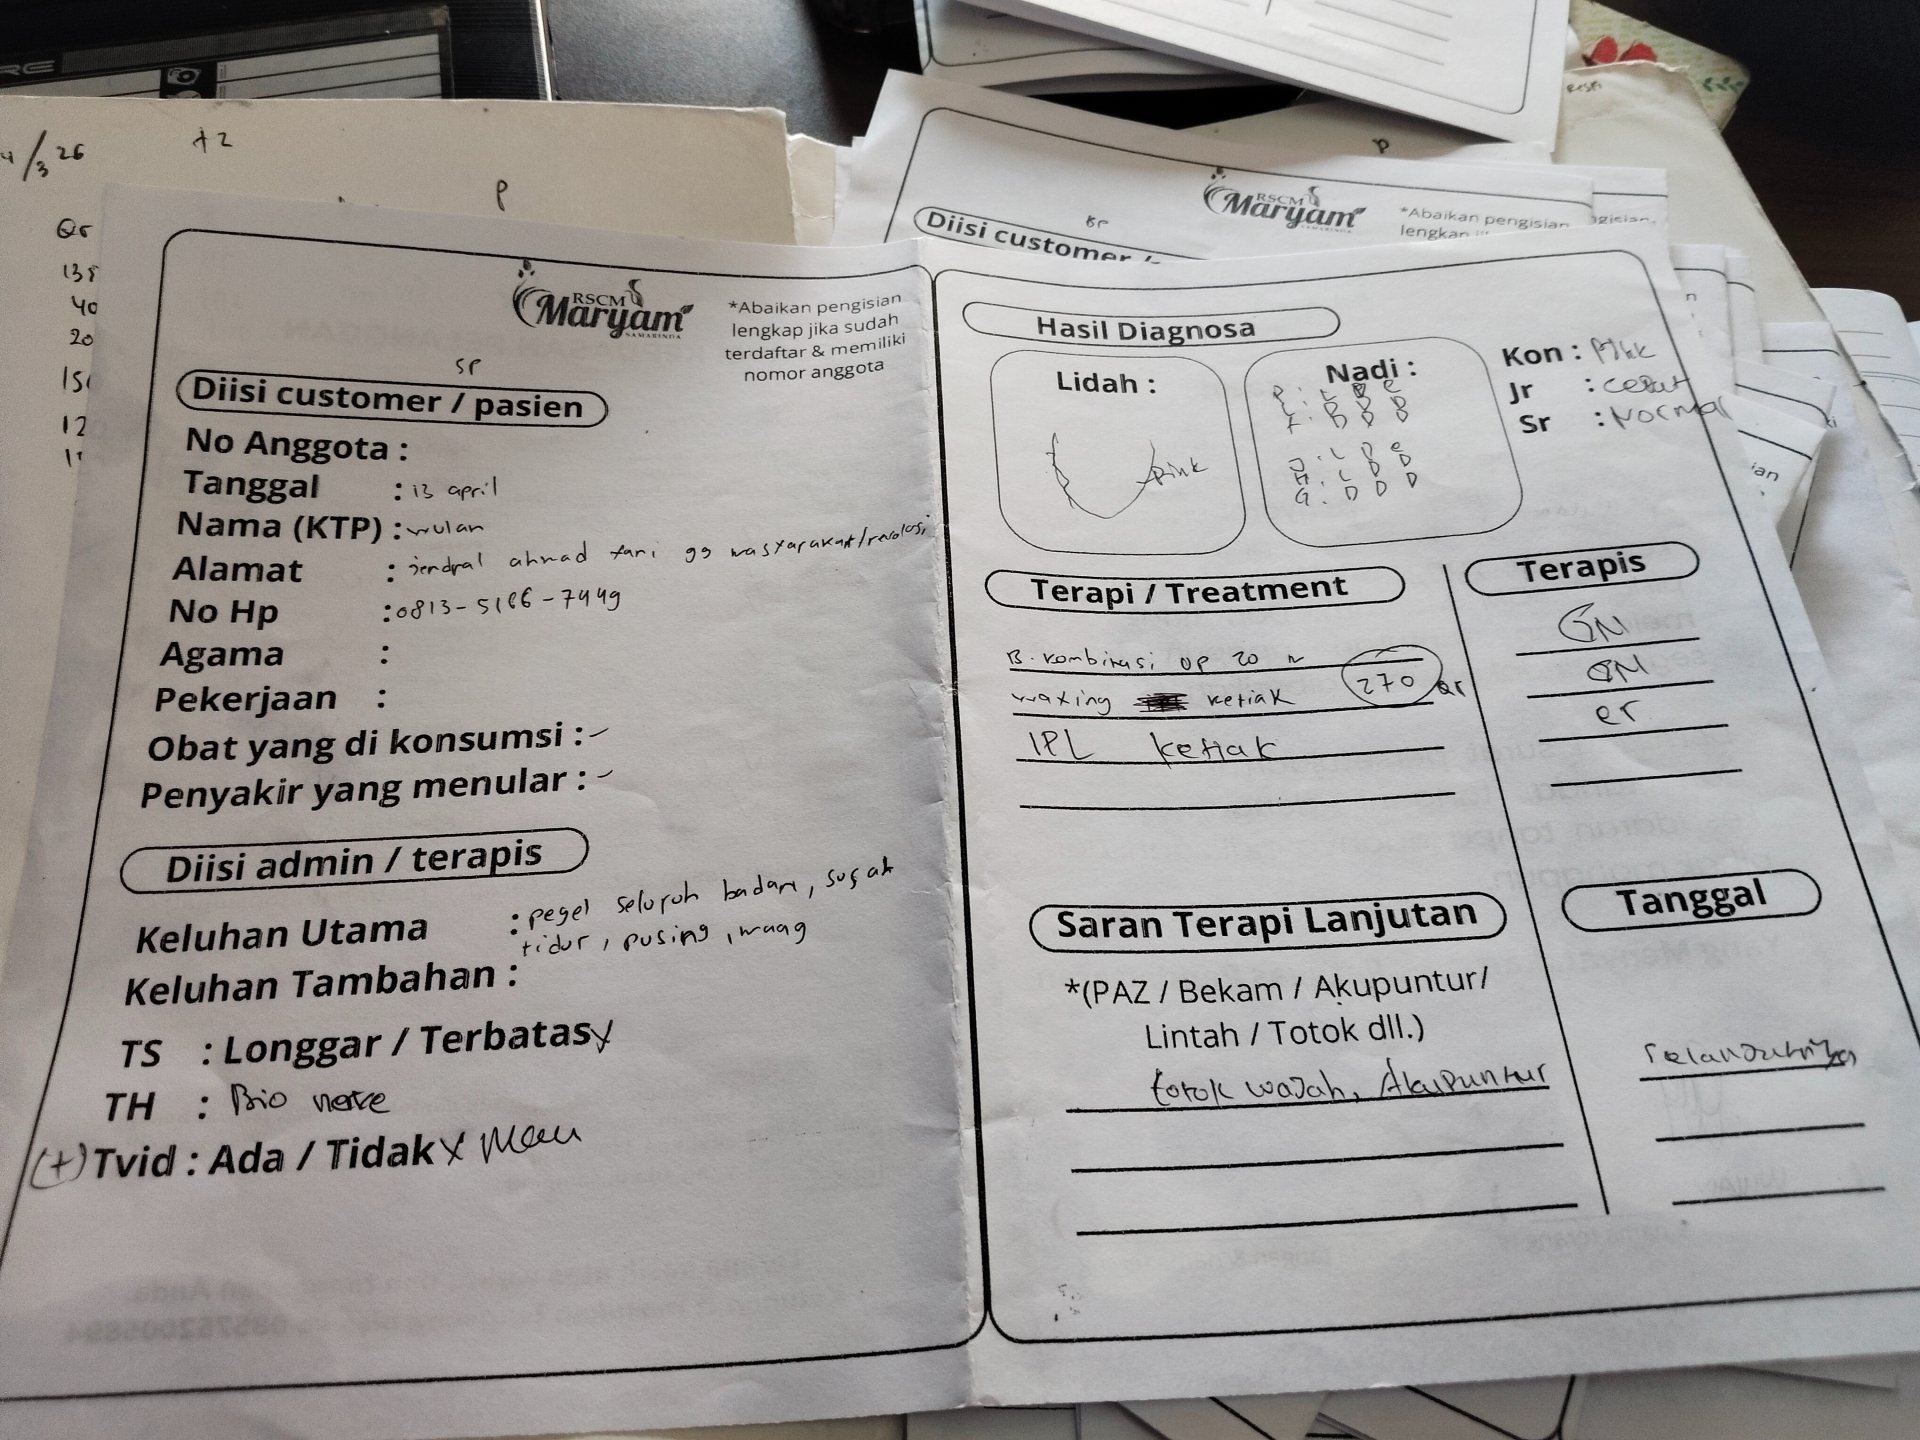 4/3 26
+2
P
Qr
40
20
12
RSCM
Maryam
SAMARINDA
*Abaikan pengisian
lengkap jika sudah
terdaftar & memiliki
nomor anggota
SP
Diisi customer / pasien
No Anggota :
Tanggal : 13 april
Nama (KTP) : wulan
Alamat : jendral ahmad yani gg masyarakat/revolusi
No Hp : 0813-5166-7449
Agama :
Pekerjaan :
Obat yang di konsumsi : -
Penyakir yang menular : -
Diisi admin / terapis
Keluhan Utama : pegel seluruh badan, susah
tidur, pusing, maag
Keluhan Tambahan :
TS : Longgar / Terbatas
TH : Bio nerve
(+) Tvid : Ada / Tidak
Hasil Diagnosa
Lidah :
pink
Nadi :
D D D
J : L D
H : L D D
G : D D D
Kon :
Jr : cepat
Sr : Normal
Terapi / Treatment
B. kombinasi up 20
waxing ketiak 270 Qr
IPL ketiak
Terapis
GN
er
Saran Terapi Lanjutan
*(PAZ / Bekam / Akupuntur/
Lintah / Totok dll.)
totok wajah, Akupuntur
Tanggal
selanjutnya
P
Br
RSCM
Maryam
SAMARINDA
Diisi customer /
*Abaikan pengisian
lengkap